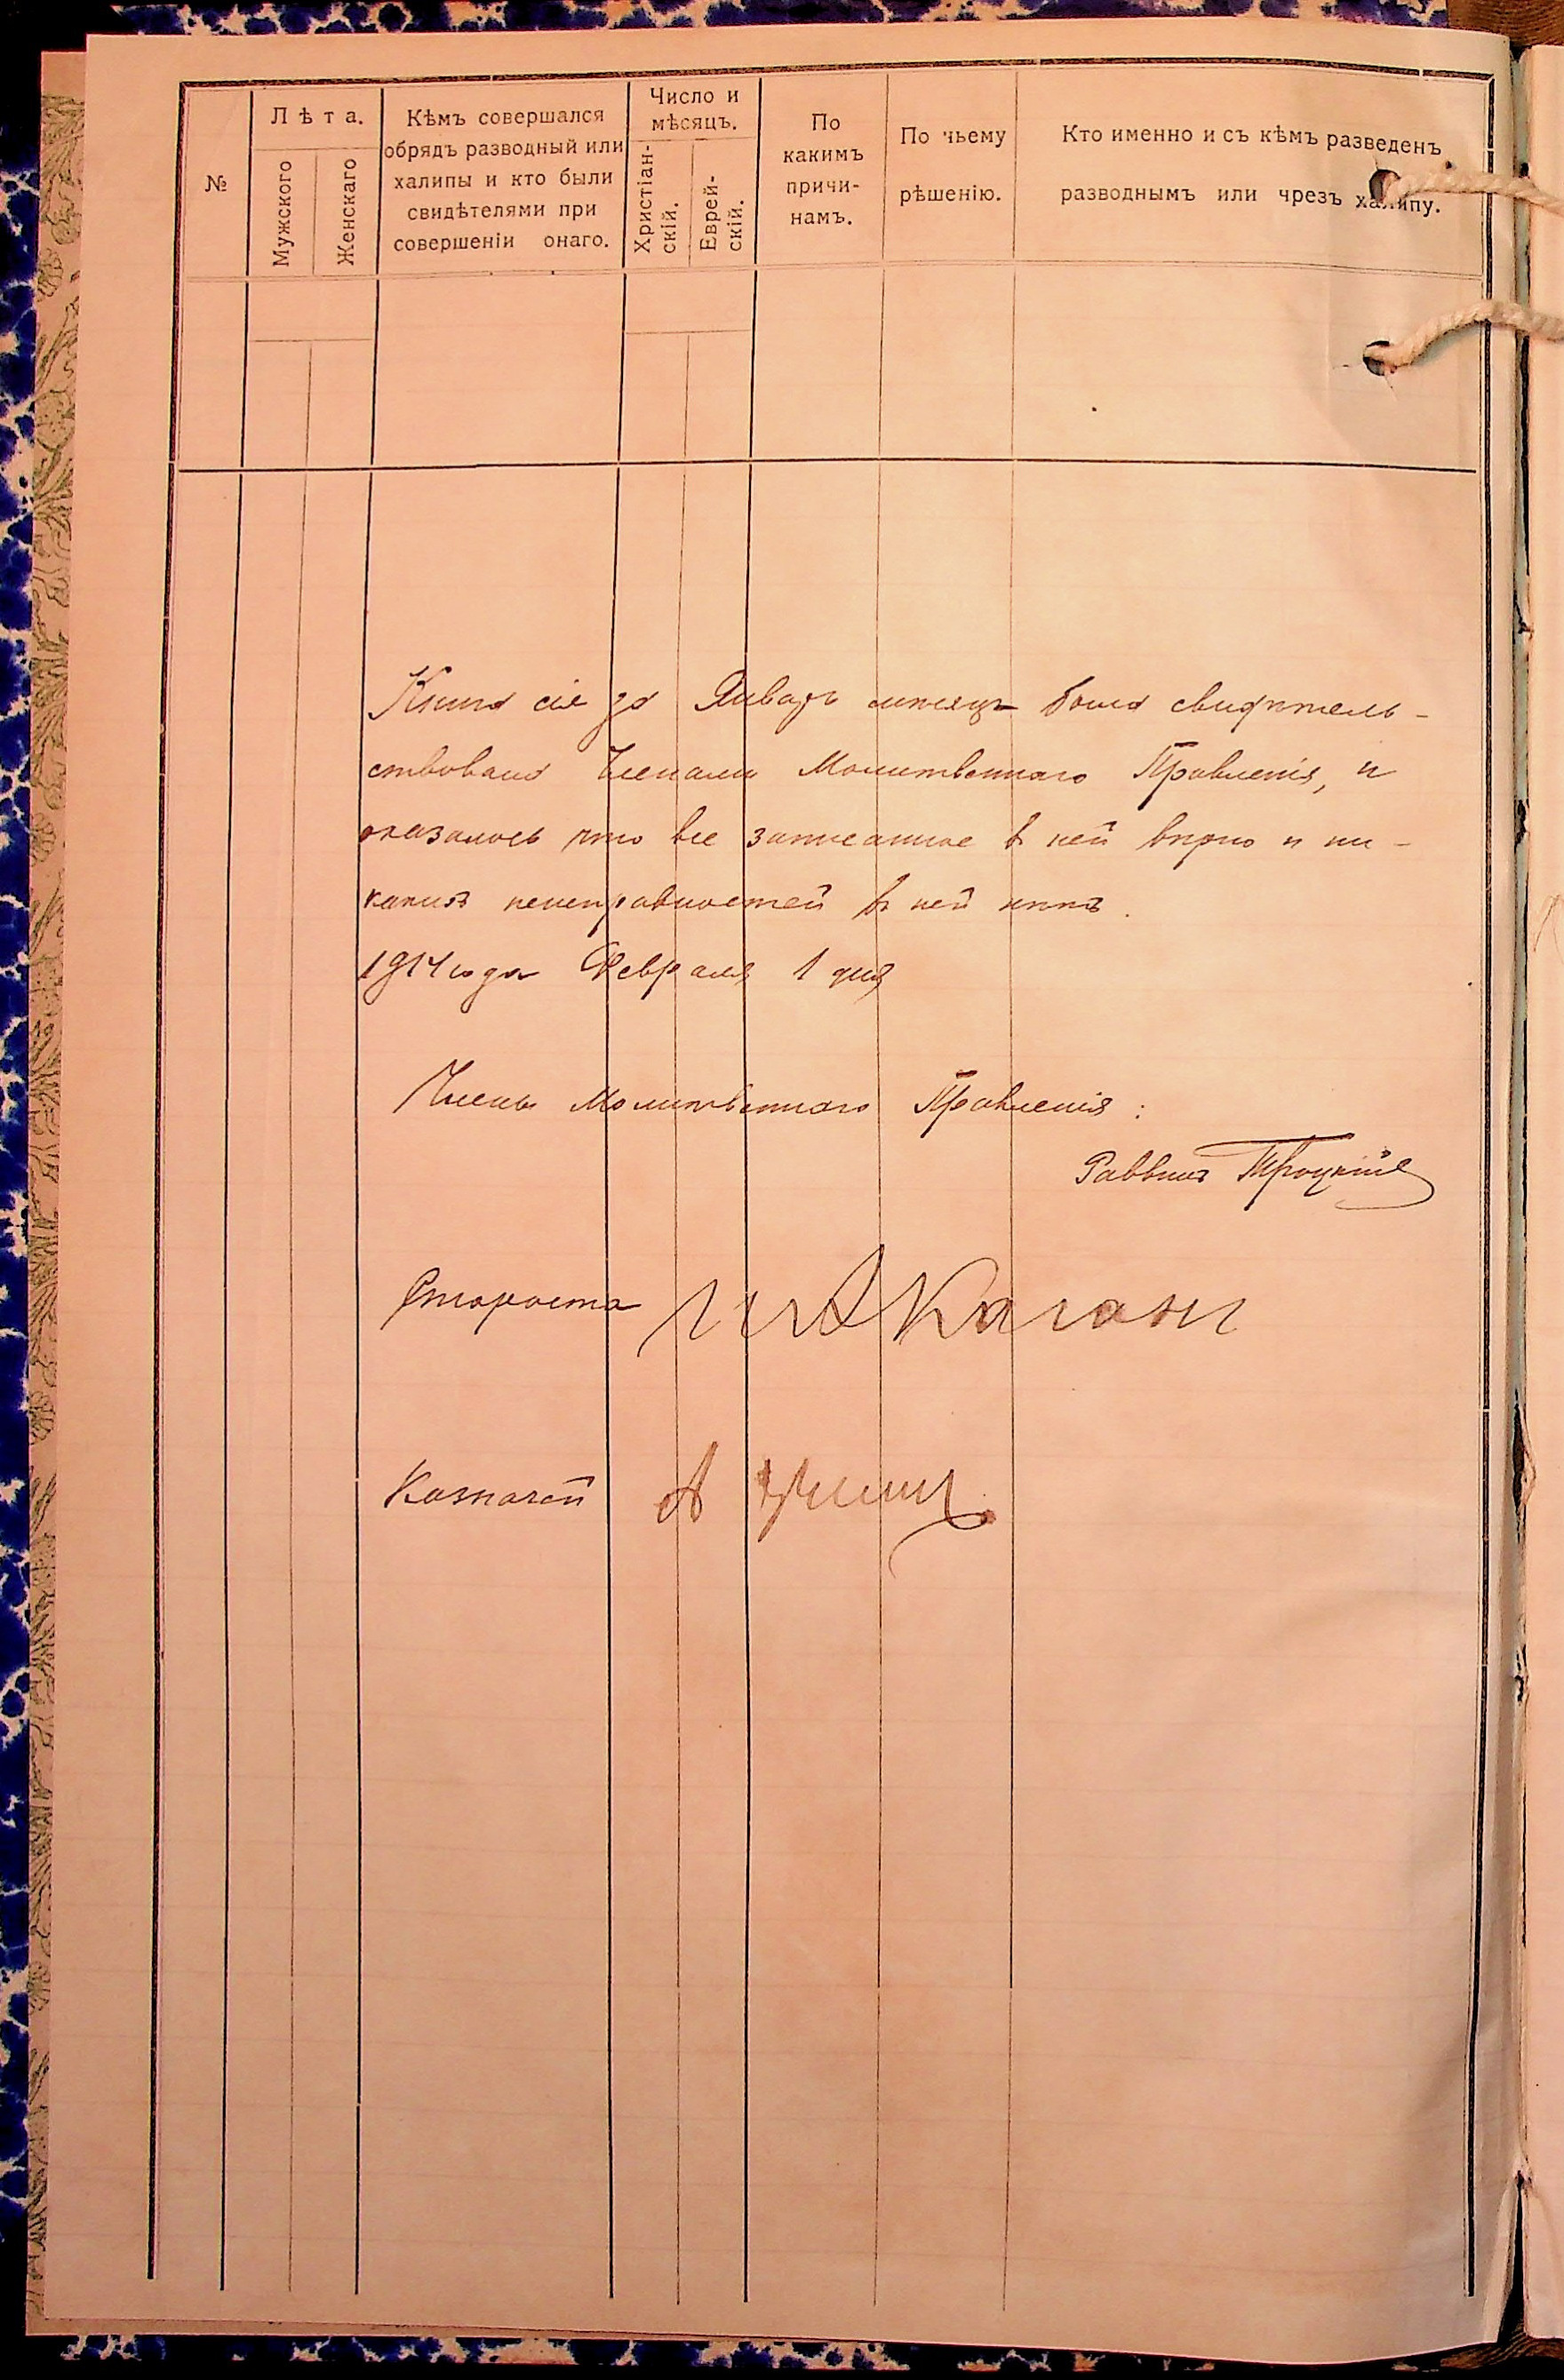 №
Лѣта.
Мужского
Женскаго
Кѣмъ совершался
обрядъ разводный или
халипы и кто были
свидѣтелями при
совершеніи онаго.
Число и
мѣсяцъ.
Христіан-
скій.
Еврей-
скій.
По
какимъ
причи-
намъ.
По чьему
рѣшенію.
Кто именно и съ кѣмъ разведенъ
разводнымъ или чрезъ халипу.
Книга сія за Январь мѣсяцъ была свидѣтель-
ствована Членами Молитвеннаго Правленія, и
оказалось что все записанное въ ней вѣрно и ни-
какихъ неисправностей въ ней нѣтъ.
1914 года Февраля 1 дня
Члены Молитвеннаго Правленія:
Раввинъ Троцкій
Староста Каганъ
Казначей А